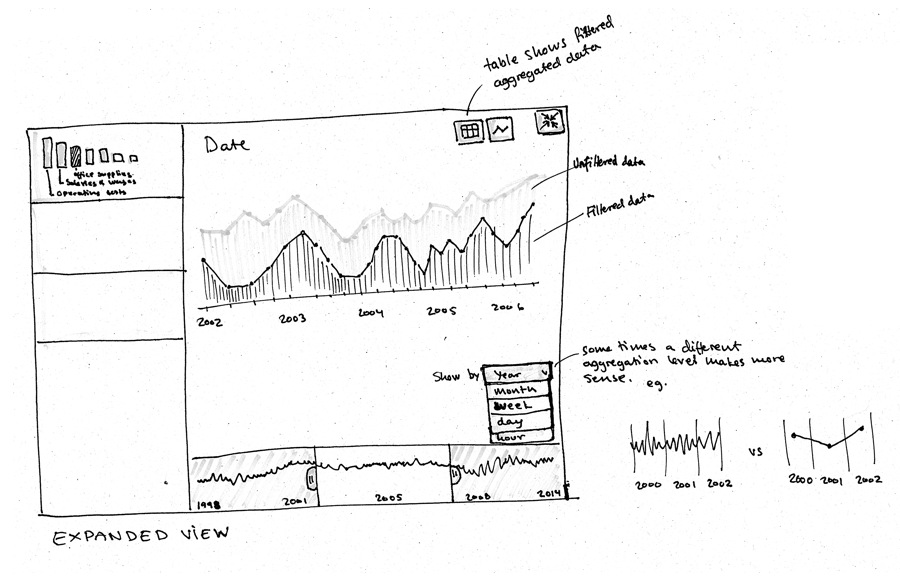 table shows filtered
aggregated data
Date
office supplies
Salaries & wages
Operating costs
Unfiltered data
Filtered data
2002 2003 2004 2005 2006
Show by Year
month
week
day
hour
some times a different
aggregation level makes more
sense. eg.
vs
2000 2001 2002
2000 2001 2002
1998 2001 2005 2008 2014
EXPANDED VIEW